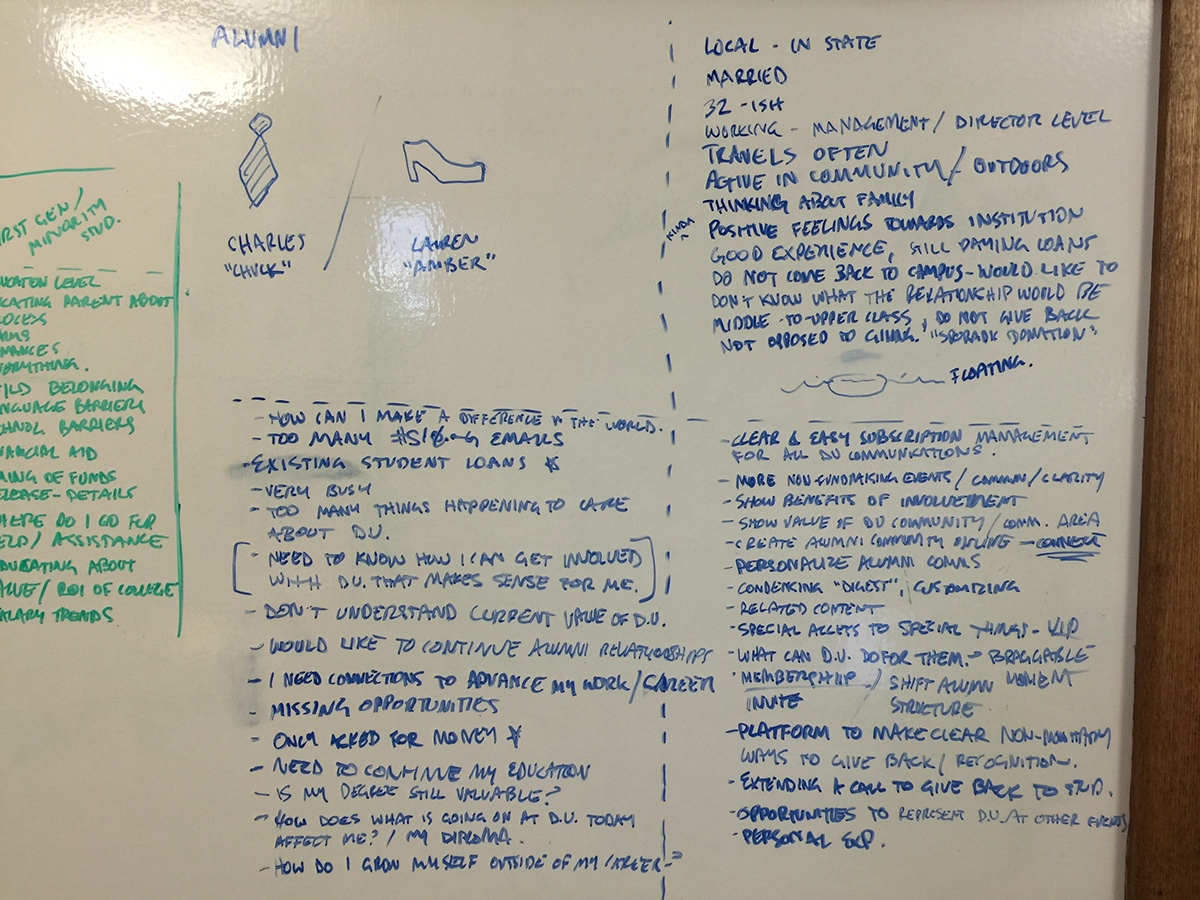 ALUMNI
CHARLES
"CHUCK"
LAUREN
"AMBER"
LOCAL - IN STATE
MARRIED
32 -ISH
WORKING - MANAGEMENT / DIRECTOR LEVEL
TRAVELS OFTEN
ACTIVE IN COMMUNITY / OUTDOORS
THINKING ABOUT FAMILY
KINDA
POSITIVE FEELINGS TOWARDS INSTITUTION
GOOD EXPERIENCE, STILL PAYING LOANS
DO NOT COME BACK TO CAMPUS - WOULD LIKE TO
DON'T KNOW WHAT THE RELATIONSHIP WOULD BE
MIDDLE-TO-UPPER CLASS, DO NOT GIVE BACK
NOT OPPOSED TO GIVING. "SPORADIC DONATION"
FLOATING.
- HOW CAN I MAKE A DIFFERENCE IN THE WORLD.
- TOO MANY EMAILS
- EXISTING STUDENT LOANS
- VERY BUSY
- TOO MANY THINGS HAPPENING TO CARE
ABOUT D.U.
- NEED TO KNOW HOW I CAN GET INVOLVED
WITH D.U. THAT MAKES SENSE FOR ME.
- DON'T UNDERSTAND CURRENT VALUE OF D.U.
- WOULD LIKE TO CONTINUE ALUMNI RELATIONSHIPS
- I NEED CONNECTIONS TO ADVANCE MY WORK / CAREER
- MISSING OPPORTUNITIES
- ONLY ASKED FOR MONEY
- NEED TO CONTINUE MY EDUCATION
- IS MY DEGREE STILL VALUABLE?
- HOW DOES WHAT IS GOING ON AT D.U. TODAY
AFFECT ME? / MY DIPLOMA.
- HOW DO I GROW MYSELF OUTSIDE OF MY CAREER?
- CLEAR & EASY SUBSCRIPTION MANAGEMENT
FOR ALL DU COMMUNICATIONS.
- MORE NON-FUNDRAISING EVENTS / COMMUN / CLARITY
- SHOW BENEFITS OF INVOLVEMENT
- SHOW VALUE OF DU COMMUNITY / COMM. AREA
- CREATE ALUMNI COMMUNITY ONLINE - CONNECT
- PERSONALIZE ALUMNI COMMS
- CONDENSING "DIGEST", CUSTOMIZING
- RELATED CONTENT
- SPECIAL ACCESS TO SPECIAL THINGS - V.I.P
- WHAT CAN D.U. DO FOR THEM. - BRAGGABLE
MOMENT
- MEMBERSHIP / SHIFT ALUMN
INVITE STRUCTURE
- PLATFORM TO MAKE CLEAR NON-MONITARY
WAYS TO GIVE BACK / RECOGNITION.
- EXTENDING A CALL TO GIVE BACK TO STUD.
- OPPORTUNITIES TO REPRESENT D.U. AT OTHER EVENTS
- PERSONAL EXP.
FIRST GEN /
MINORITY
STUD.
LEVEL
PARENT ABOUT
BELONGING
LANGUAGE BARRIERS
BARRIERS
FINANCIAL AID
OF FUNDS
- DETAILS
WHERE DO I GO FOR
HELP / ASSISTANCE
ABOUT
VALUE / ROI OF COLLEGE
SALARY TRENDS